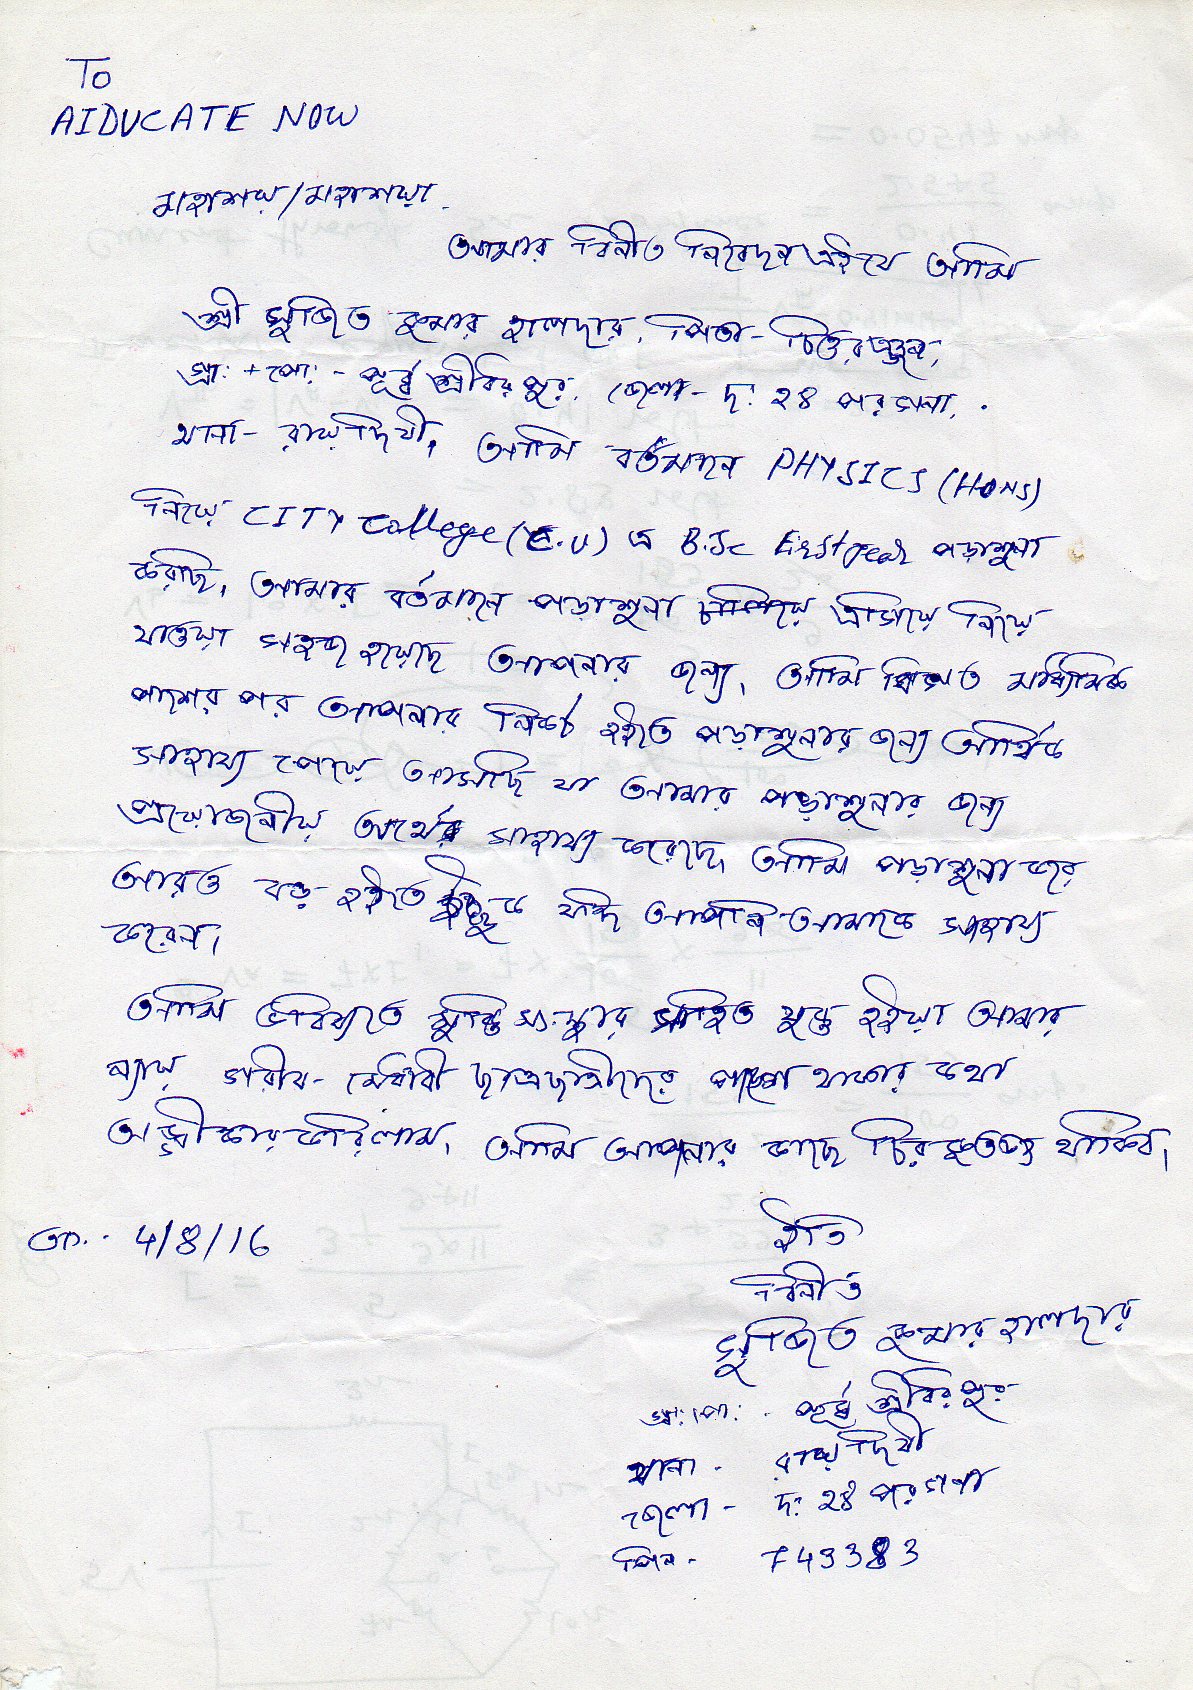 To
AIDUCATE NOW
মহাশয়/মহাশয়া.
আমার বিনীত নিবেদন এই যে আমি
শ্রী সুজিত কুমার হালদার, পিতা- চিত্তরঞ্জন,
গ্রা: + পো: - পূর্ব শ্রীধরপুর, জেলা- দ: ২৪ পরগনা,
থানা- রায়দিঘী, আমি বর্তমানে PHYSICS (HONS)
নিয়ে CITY College (C.U) এ B.Sc First year পড়াশুনা
করছি, আমার বর্তমানে পড়াশুনা চালিয়ে এগিয়ে নিয়ে
যাওয়া সহজ হয়েছে আপনার জন্য, আমি বিগত মাধ্যমিক
পাশের পর আপনার নিকট হইতে পড়াশুনার জন্য আর্থিক
সাহায্য পেয়ে আসছি যা আমার পড়াশুনার জন্য
প্রয়োজনীয় অর্থের সাহায্য করেছে, আমি পড়াশুনা করে
আরও বড় হইতে ইচ্ছুক যদি আপনি আমাকে সাহায্য
করেন,
আমি ভবিষ্যতে মুক্তি সংস্থার সহিত যুক্ত হইয়া আমার
ন্যায় গরীব- মেধাবী ছাত্রছাত্রীদের পাশে থাকার কথা
অঙ্গীকার করিলাম, আমি আপনার কাছে চির কৃতজ্ঞ থাকিব,
তাং. 4/8/16
ইতি
বিনীত
সুজিত কুমার হালদার
গ্রা: পো: - পূর্ব শ্রীধরপুর
থানা - রায়দিঘী
জেলা - দ: ২৪ পরগনা
পিন - 743383